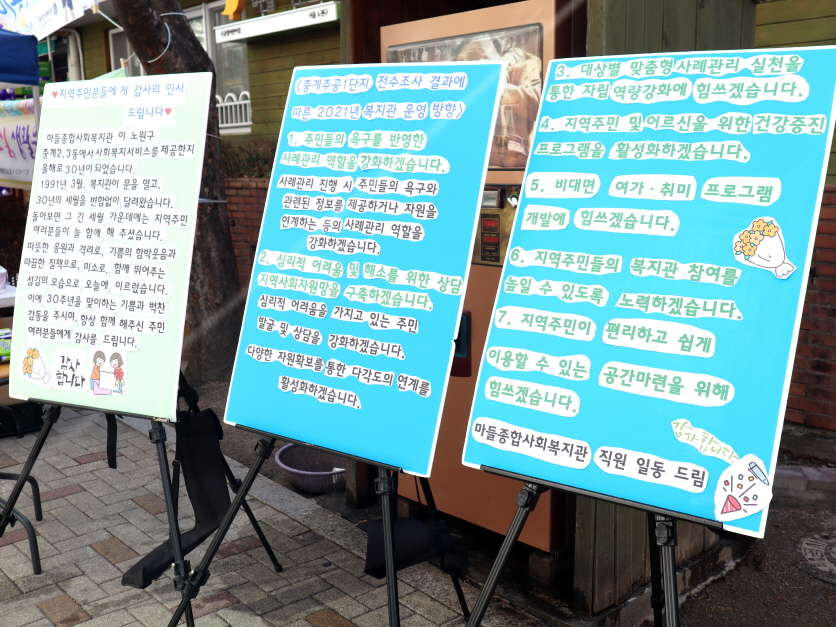 ♥지역주민분들에게 감사의 인사
드립니다♥
마들종합사회복지관 이 노원구
중계2,3동에서 사회복지서비스를 제공한지
올해로 30년이 되었습니다.
1991년 3월, 복지관이 문을 열고,
30년의 세월을 변함없이 달려왔습니다.
돌아보면 그 긴 세월 가운데에는 지역주민
여러분들이 늘 함께 해 주셨습니다.
따뜻한 응원과 격려로, 기쁨의 함박웃음과
따끔한 질책으로, 미소로, 함께 뛰어주는
섬김의 모습으로 오늘에 이르렀습니다.
이에 30주년을 맞이하는 기쁨과 벅찬
감동을 주시며, 항상 함께 해주신 주민
여러분들에게 감사를 드립니다.
감사
합니다
<중계주공1단지 전수조사 결과에
따른 2021년 복지관 운영 방향>
1. 주민들의 욕구를 반영한
사례관리 역할을 강화하겠습니다.
사례관리 진행 시 주민들의 욕구와
관련된 정보를 제공하거나 자원을
연계하는 등의 사례관리 역할을
강화하겠습니다.
2. 심리적 어려움 및 해소를 위한 상담
지역사회자원망을 구축하겠습니다.
심리적 어려움을 가지고 있는 주민
발굴 및 상담을 강화하겠습니다.
다양한 자원확보를 통한 다각도의 연계를
활성화하겠습니다.
3. 대상별 맞춤형사례관리 실천을
통한 자립 역량강화에 힘쓰겠습니다.
4. 지역주민 및 어르신을 위한 건강증진
프로그램을 활성화하겠습니다.
5. 비대면 여가·취미 프로그램
개발에 힘쓰겠습니다.
6. 지역주민들의 복지관 참여를
높일 수 있도록 노력하겠습니다.
7. 지역주민이 편리하고 쉽게
이용할 수 있는 공간마련을 위해
힘쓰겠습니다.
마들종합사회복지관 직원 일동 드림
감사합니다